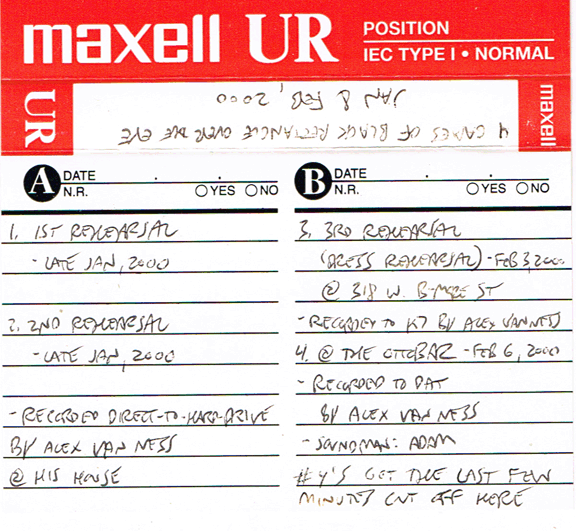 maxell UR POSITION
IEC TYPE I • NORMAL
UR
4 CAKES OF BLACK RECTANGLE OVER THE EYE
JAN & FEB, 2000
maxell
A DATE . .
N.R. YES NO
1. 1ST REHEARSAL
- LATE JAN, 2000
2. 2ND REHEARSAL
- LATE JAN, 2000
- RECORDED DIRECT-TO-HARD-DRIVE
BY ALEX VAN NESS
@ HIS HOUSE
B DATE . .
N.R. YES NO
3. 3RD REHEARSAL
(DRESS REHEARSAL) - FEB 3, 2000
@ 318 W. B-MORE ST
- RECORDED TO K7 BY ALEX VAN NESS
4. @ THE OTTOBAR - FEB 6, 2000
- RECORDED TO DAT
BY ALEX VAN NESS
- SOUNDMAN: ADAM
#4'S GET THE LAST FEW
MINUTES CUT OFF HERE